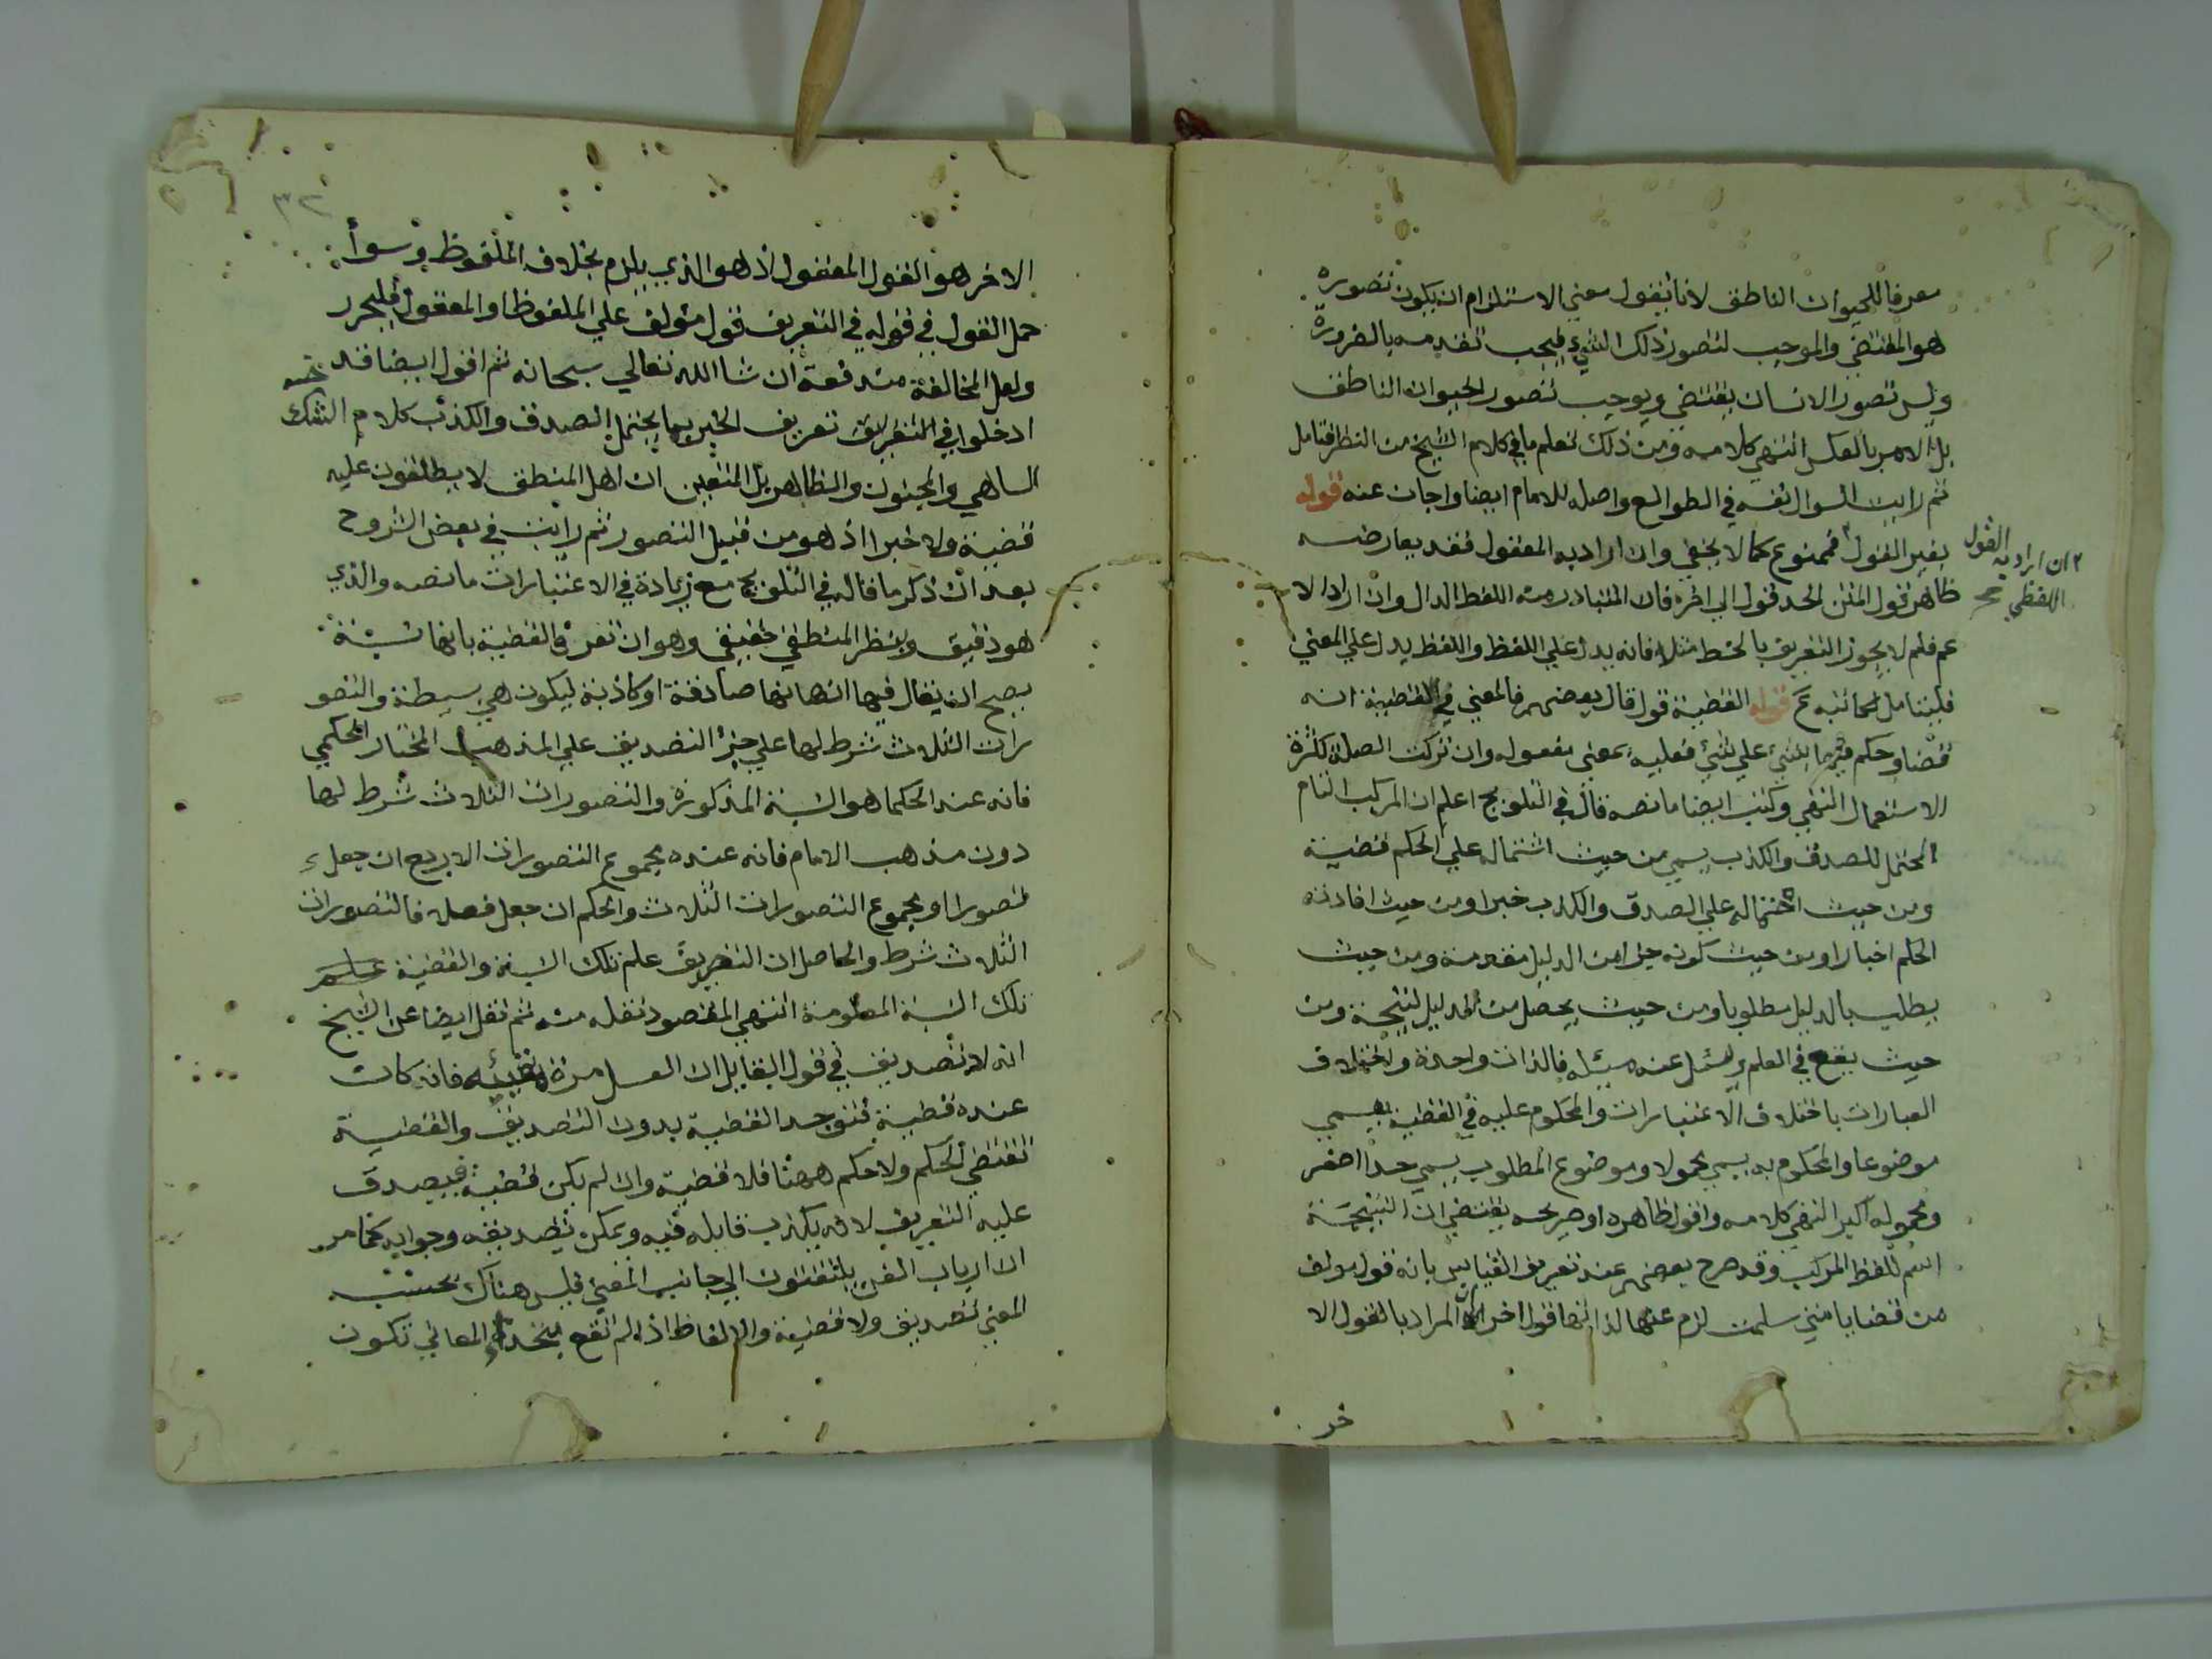 معرفا للحيوان الناطق لانا نقول معني الاستلزام ان يكون تصوره
هو المقتضي والموجب لتصور ذلك الشيء فيجب تقدمه بالضرورة
وليس تصور الانسان يقتضي ويوجب تصور الحيوان الناطق
بل الامر بالعكس انتهي كلامه ومن ذلك تعلم ما في كلام الشيخ من النظر فتامل
ثم رايت السوال نفسه في الطوالع واصله للامام ايضا واجاب عنه قوله
بغير القول فممنوع كما لا يخفي وان اراد به المعقول فقد يعارضه
ان اراد به القول
اللفظي صح
ظاهر قول المتن الحد قول الي اخره فان المتبادر منه اللفظ الدال وان اراد الا
عم فلم لا يجوز التعريف بالخط مثلا فانه يدل علي اللفظ واللفظ يدل علي المعني
فليتامل لمحاشيه قوله القضية قول قال بعضهم فالمعني في القضية انه
قضا وحكم فيها بشي علي شي فعليه بمعني مفعوله وان تركت الصلة لكثرة
الاستعمال انتهي وكتب ايضا ما نصه قال في التلويح اعلم ان المركب التام
المحتمل للصدق والكذب يسمي من حيث اشتماله علي الحكم قضية
ومن حيث احتماله علي الصدق والكذب خبرا ومن حيث افادته
الحكم اخبارا ومن حيث كونه جزا من الدليل مقدمة ومن حيث
يطلب بالدليل مطلوبا ومن حيث يحصل من الدليل نتيجة ومن
حيث يقع في العلم ويسئل عنه مسئله فالذات واحدة واختلاف
العبارات باختلاف الاعتبارات والمحكوم عليه في القضية يسمي
موضوعا والمحكوم به يسمي محمولا وموضوع المطلوب يسمي حدا اصغر
ومحموله اكبر انتهي كلامه واقول ظاهره او صريحه يقتضي ان النتيجة
اسم للفظ المركب وقد صرح بعضهم عند تعريف القياس بانه قول مولف
من قضايا متي سلمت لزم عنها لذاتها قول اخر ان المراد بالقول الا
خر
٣٢
الاخر هو القول المعقول اذ هو الذي يلزم بخلاف الملفوظ وسوأ
حمل القول في قوله في التعريف قول مؤلف علي الملفوظ او المعقول فليحرر
ولعل المخالفة مندفعة ان شا الله تعالي سبحانه ثم اقول ايضا قد
ادخلوا في التعريف تعريف الخبر بما يحتمل الصدق والكذب كلام الشك
الساهي والمجنون والظاهر بل المتعين ان اهل المنطق لا يطلقون عليه
قضية ولا خبرا اذ هو من قبيل التصور ثم رايت في بعض الشروح
بعد ان ذكر ما قاله في التلويح مع زيادة في الاعتبارات ما نصه والذي
هو دقيق وبنظر المنطقي حقيقي وهو ان تعرف القضية بانها نسبة
يصح ان يقال فيها انها صادقة او كاذبة ليكون هي بسيطة والتصو
رات الثلاث شرط لها علي جزء التصديق علي المذهب المختار الحكمي
فانه عند الحكما هو النسبة المذكورة والتصورات الثلاث شرط لها
دون مذهب الامام فانه عنده مجموع التصورات الاربع ان جعل
تصورا او مجموع التصورات الثلاث والحكم ان جعل فعلا فالتصورات
الثلاث شرط والحاصل ان التعريف علم تلك النسبة والقضية علم
تلك النسبة المعلومة انتهي المقصود نقله منه ثم نقل ايضا عن الشيخ
انه لا تصديق في قول القايل ان العسل مرة مقيئه فان كانت
عنده قضية فتوجد القضية بدون التصديق والقضية
تقتضي الحكم ولا حكم ههنا فلا قضية وان لم يكن قضية فيصدق
عليه التعريف لانه يكذب قايله فيه ويمكن تصديقه وجوابه كما مر
ان ارباب الفن يلتفتون الي جانب المعني فليس هناك بحسب
المعني تصديق ولا قضية والالفاظ اذا لم تقع بحذاء المعاني تكون